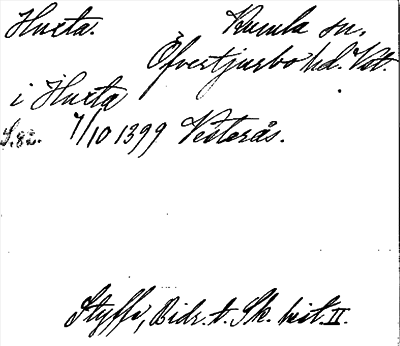 Husta. Kumla sn.
Öfvertjurbo hd. Vst.
i Husta
S. 82. 7/10 1399 Vesterås.
Styffe, Bidr. t. Sk. hist. II.